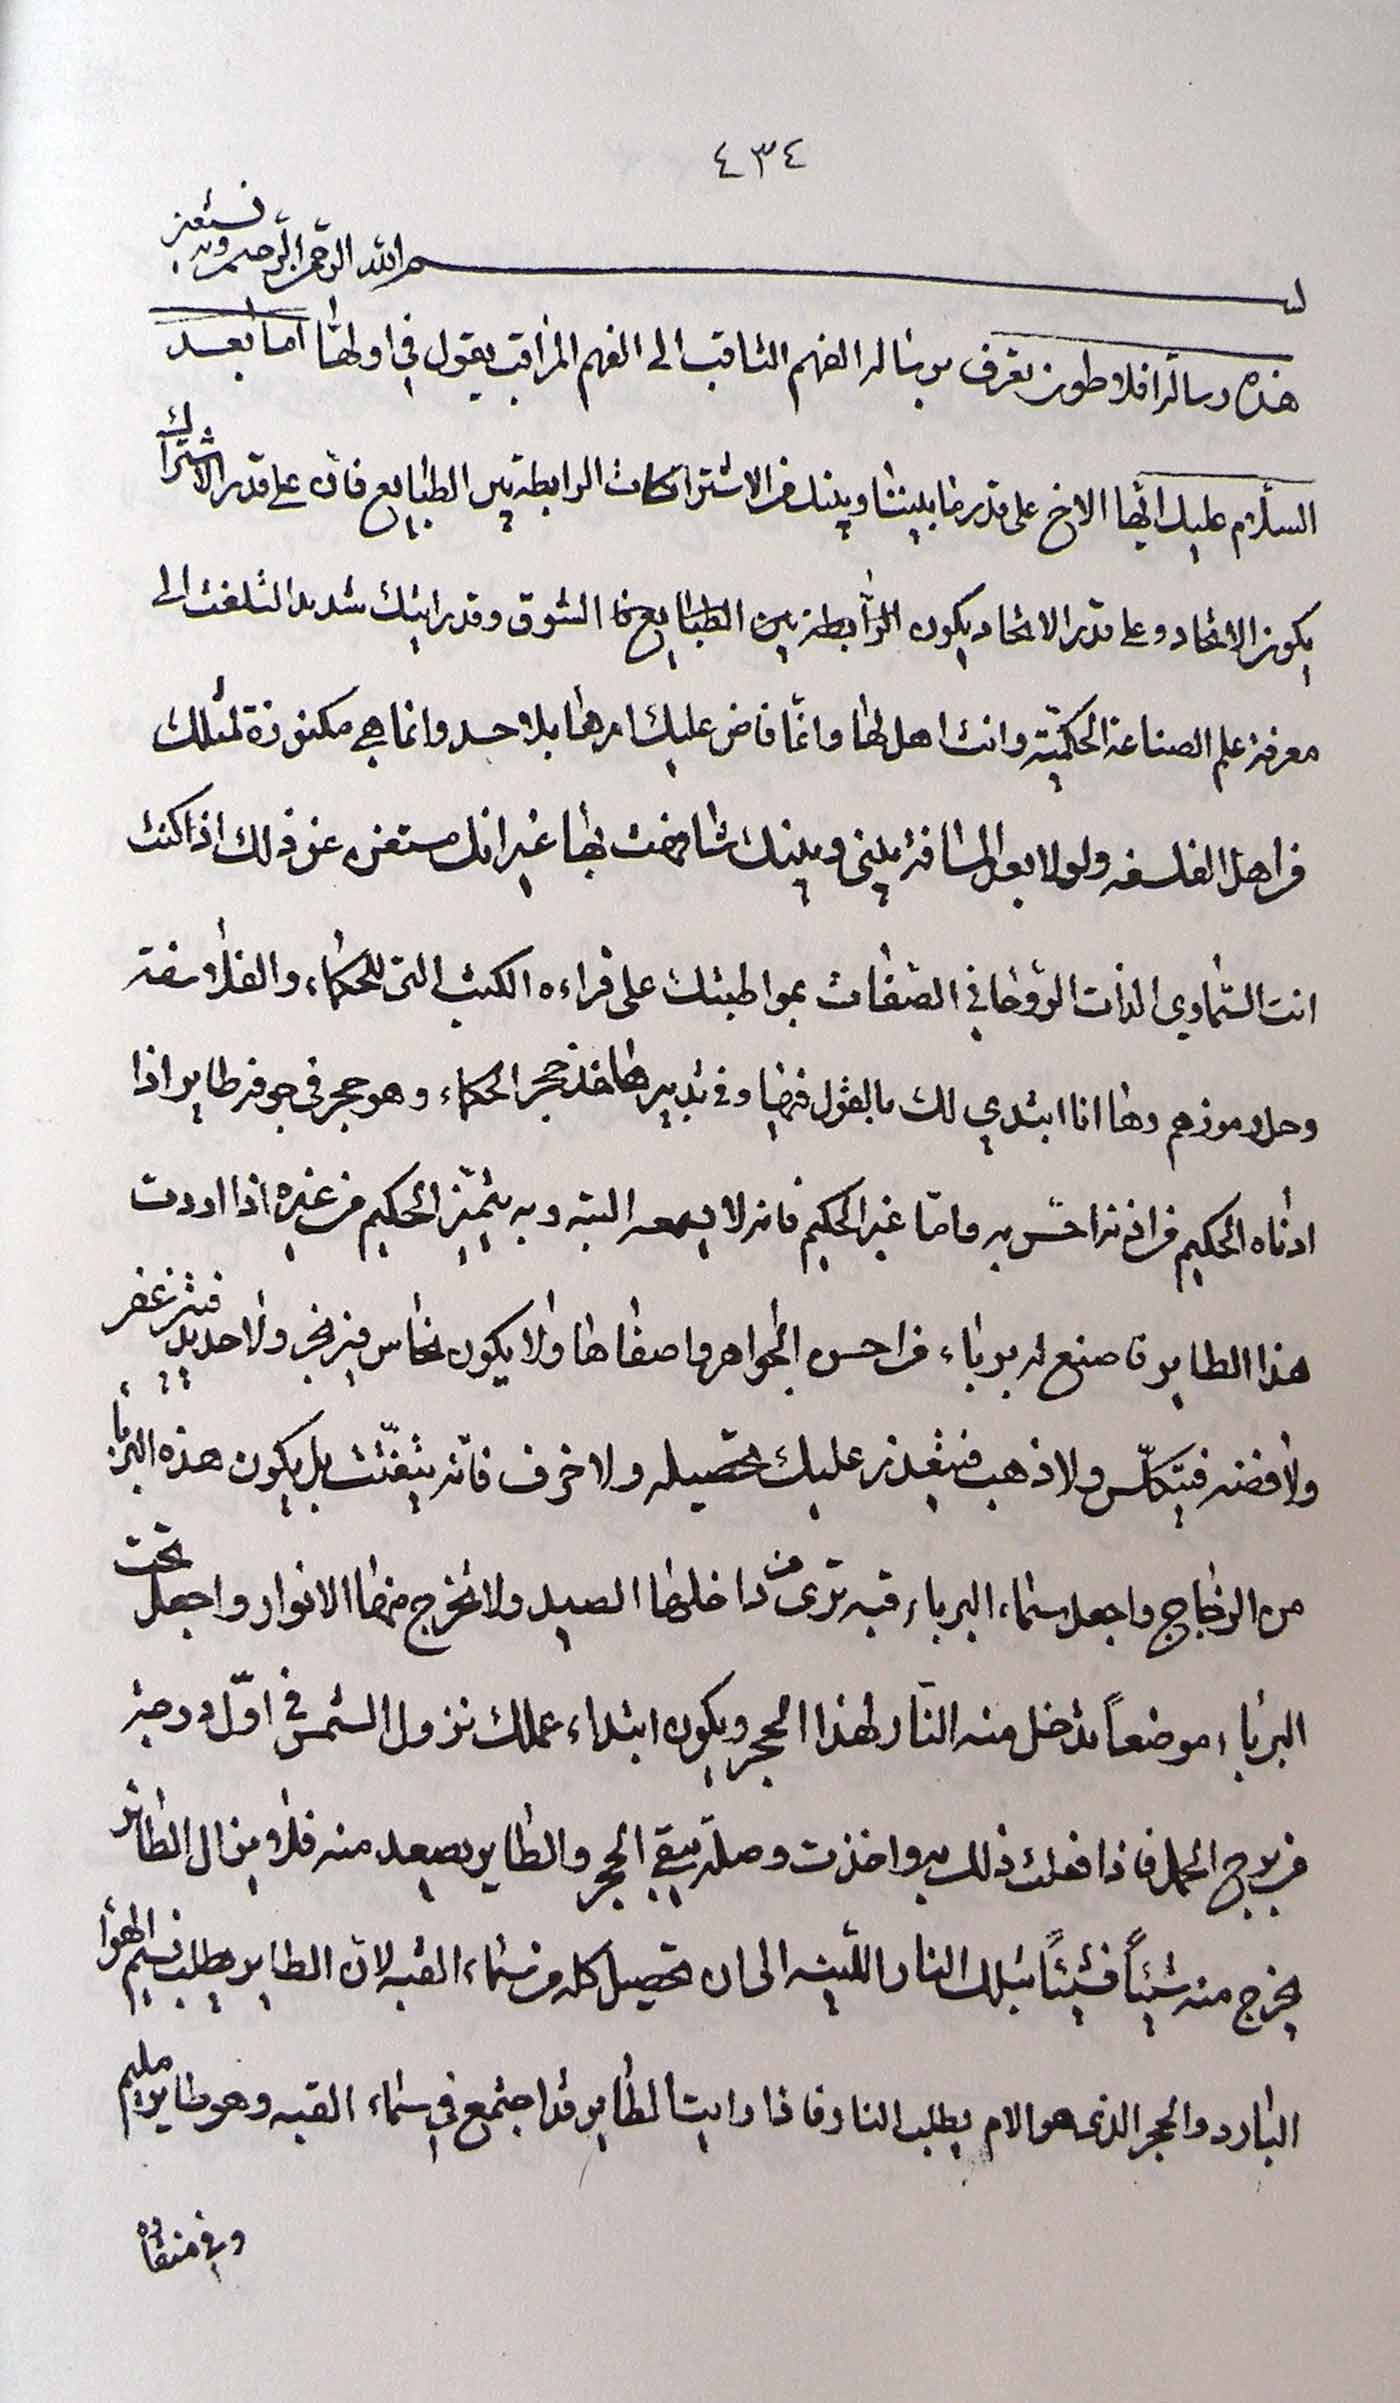 ٤٣٤
بسم الله الرحمن الرحيم وبه نستعين
هذه رسالة افلاطون تعرف برسالة الفهم الثاقب الى الفهم المراقب يقول في اولها اما بعد
السلام عليك ايها الاخ على قدر ما بيننا وبينك من الاشتراكات الرابطة بين الطبايع فان على قدر الاشتراك
يكون الاتحاد وعلى قدر الاتحاد يكون الرابطة بين الطبايع الشوق وقد رايتك شديد التلفت الى
معرفة علم الصناعة الحكمية وانت اهل لها وانما فاض عليك امرها بلا حد وانما هي مكنوزة لمثلك
من اهل الفلسفه ولولا بعد المسافة بيني وبينك شافهت بها غير انك مستغن عن ذلك اذا كنت
انت السماوي الذات الروحاني الصفات بمواظبتك على قراءه الكتب التي للحكماء والفلاسفة
وحل رموزهم وها انا ابتدي لك بالقول فيها وفي تدبيرها خذ حجر الحكماء وهو حجر في جوفه طاير اذا
ادناه الحكيم من اذنه احس به واما غير الحكيم فانه لا يسمعه البته وبه يتميز الحكيم من غيره اذا اردت
هذا الطاير فاصنع له برباء من احسن الجواهر واصفاها ولا يكون نحاس فيزنجر ولا حديد فيتزعفر
ولا فضه فيتكلس ولا ذهب فيتعذر عليك تحصيله ولا خزف فانه يتفتت بل يكون هذه البربا
من الزجاج واجعل سماء البرباء قبه ترى من داخلها الصيد ولا تخرج منها الانوار واجعل تحت
البرباء موضعاً تدخل منه النار لهذا الحجر ويكون ابتداء عملك نزول الشمس في اول درجة
من برج الحمل فاذا فعلت ذلك به واخذت وصلة يبقى الحجر والطاير يصعد منه فلا يزال الطاير
يخرج منه شيئاً فشيئاً بتلك النار اللينه الى ان تحصيل كله من سماء القبه لان الطاير يطلب نسيم الهوا
البارد والحجر الذي هو الام يطلب النار فاذا رايت الطاير قد اجتمع في سماء القبه وهو طاير مليم
وفي منقاده